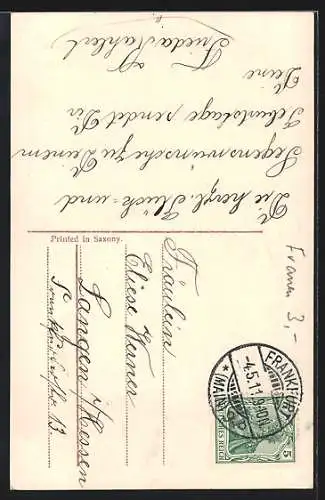 Die herzl. Glück- und
Segenswünsche zu Deinem
Geburtstage sendet Dir
Deine
Frieda Kahlert
Printed in Saxony.
Fräulein
Eliese Werner
Langen i/Hessen
Frankfurterstr 13
Frauen 3,-
FRANKFURT
-4.5.11.9-10N.
* (MAIN)
DEUTSCHES REICH
5